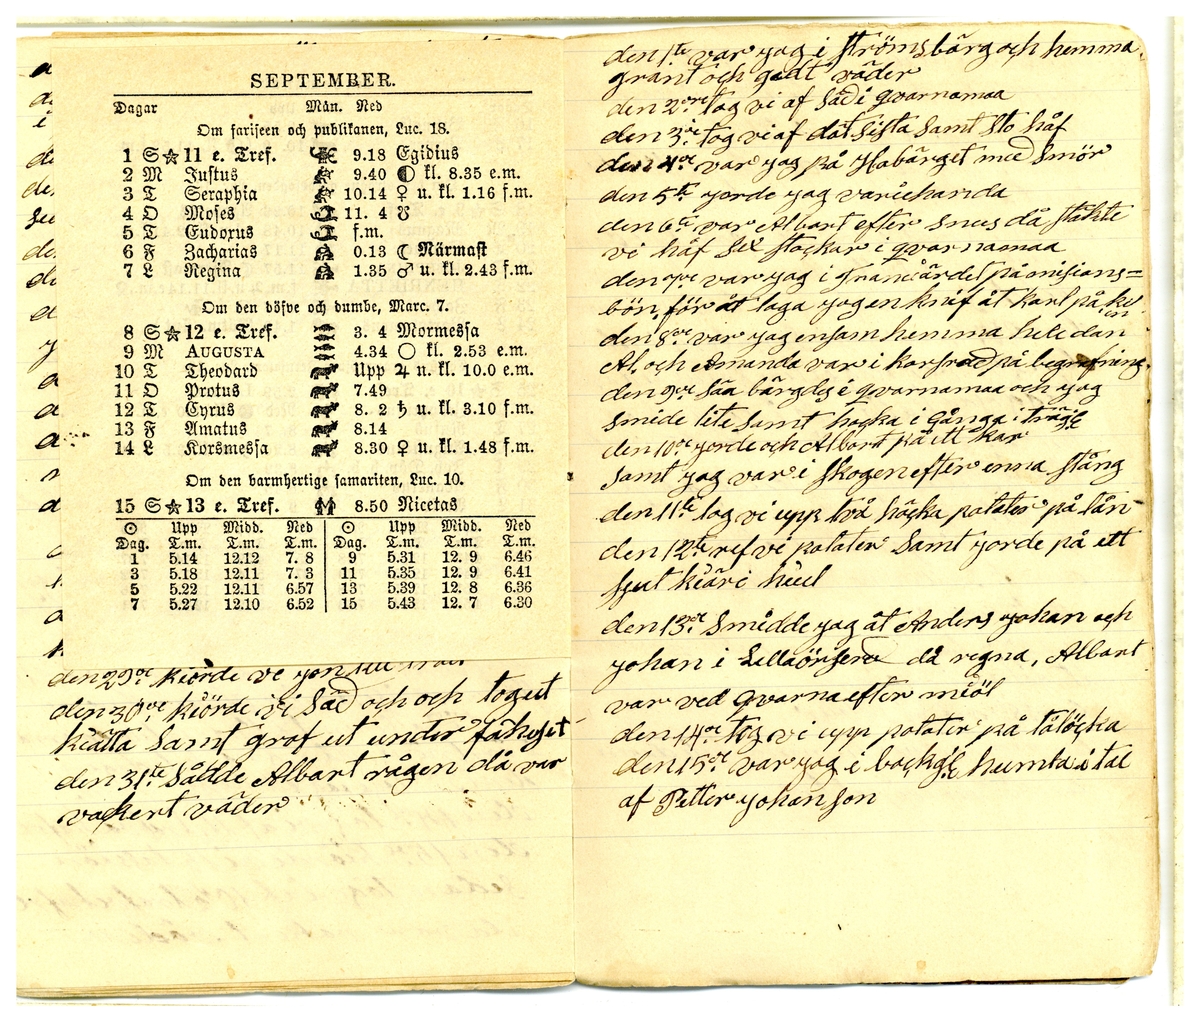 SEPTEMBER.
Dagar Mån. Ned
Om fariseen och publikanen, Luc. 18.
1 S ☆ 11 e. Tref. 9.18 Egidius
2 M Justus 9.40 ◐ kl. 8.35 e.m.
3 T Seraphia 10.14 ♀ u. kl. 1.16 f.m.
4 O Moses 11. 4 ☋
5 T Eudoxus f.m.
6 F Zacharias 0.13 ☾ Närmast
7 L Regina 1.35 ♂ u. kl. 2.43 f.m.
Om den döfve och dumbe, Marc. 7.
8 S ☆ 12 e. Tref. 3. 4 Mormessa
9 M AUGUSTA 4.34 ○ kl. 2.53 e.m.
10 T Theodard Upp ♃ u. kl. 10.0 e.m.
11 O Protus 7.49
12 T Cyrus 8. 2 ♄ u. kl. 3.10 f.m.
13 F Amatus 8.14
14 L Korsmessa 8.30 ♀ u. kl. 1.48 f.m.
Om den barmhertige samariten, Luc. 10.
15 S ☆ 13 e. Tref. 8.50 Nicetas
☉ Upp Midd. Ned ☉ Upp Midd. Ned
Dag. T.m. T.m. T.m. Dag. T.m. T.m. T.m.
1 5.14 12.12 7. 8 9 5.31 12. 9 6.46
3 5.18 12.11 7. 3 11 5.35 12. 9 6.41
5 5.22 12.11 6.57 13 5.39 12. 8 6.36
7 5.27 12.10 6.52 15 5.43 12. 7 6.30
den 29de kiörde ve
den 30de kiörde vi Säd och och tog ut
kiätta samt graf ut under fähuset
den 31te Sådde Albart rågen då var
vackert väder
den 1te var yag i Strömsbärg och hemma.
grant och godt väder
den 2dre tog vi af Säd i qvarnamaa
den 3de tog vi af dät sista samt sto håf
den 4de var yag på Habärget med Smör
den 5te yorde yag varichanda
den 6te var Albart efter snus då stäkte
vi håf sex stockar i qvarnamaa
den 7de var yag i Granärdet på misions=
bön för åt laga yagen knif åt karl på
den 8de var yag ensam hemma hele dan
Al, och Amanda var i korsrad på begrafning.
den 9de Såa bärgdes i qvarnamaa och yag
smide lite samt hacka i gånga i
den 10de yorde och Albart på ett kar
samt yag var i skogen efter enna stång
den 11te tog vi upp två häcka potater på lån
den 12te ref vi potater samt yorde på ett
sjut kiäri huul
den 13de Smidde yag åt Anders yohan och
yohan i då regna, Albart
var ved qvarna efter miöl
den 14de tog vi upp potater på
den 15de var yag i humta i tal
af Petter yohanson